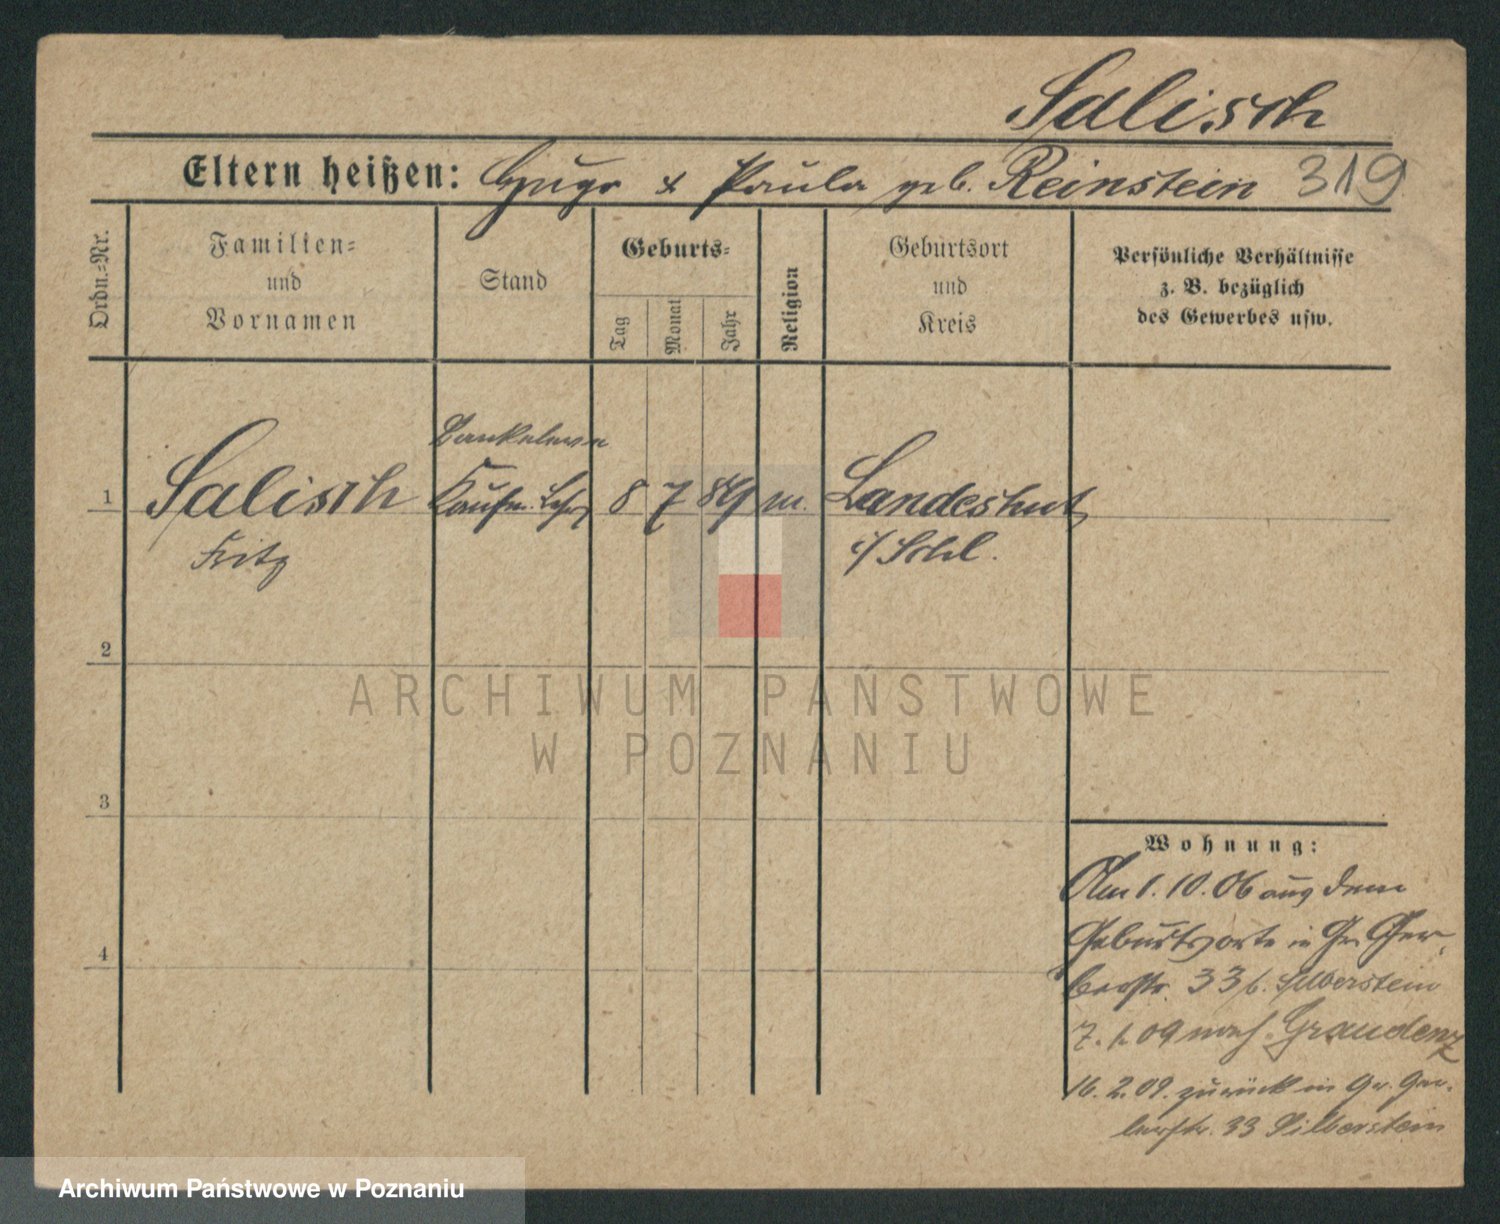 Salisch
Eltern heißen: Hugo & Paula geb. Reinstein 319
Ordn.=Nr.
Familien=
und
Vornamen
Stand
Geburts=
Tag
Monat
Jahr
Religion
Geburtsort
und
Kreis
Persönliche Verhältnisse
z. B. bezüglich
des Gewerbes usw.
1 Salisch Kaufm. 8 7 89 m. Landeshut
Fritz i/ Schl.
2
3
4
Wohnung:
Am 1. 10. 06 aus dem
Geburtsorte in Gr. Ger-
berstr. 33 b. Silberstein
7. 1. 09 nach Graudenz
16. 2. 09. zurück in Gr. Ger-
berstr. 33 Silberstein
ARCHIWUM PAŃSTWOWE
W POZNANIU
Archiwum Państwowe w Poznaniu